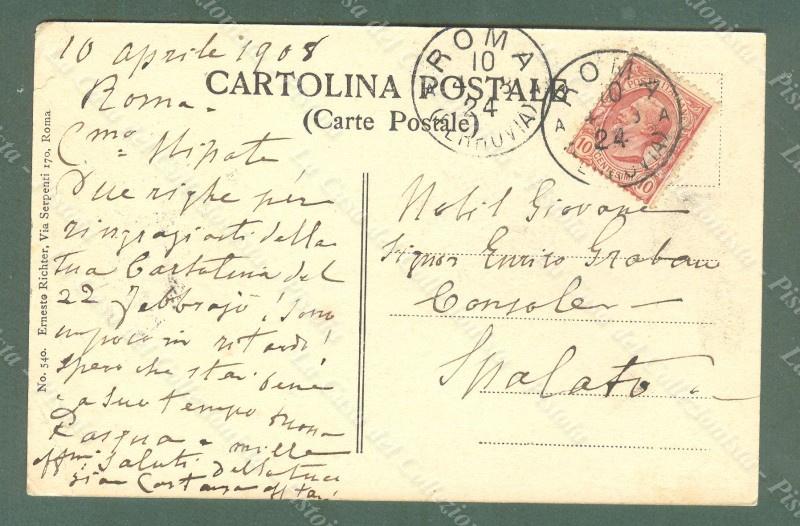 10 aprile 1908
Roma
CARTOLINA POSTALE
(Carte Postale)
ROMA
10
24
(FERROVIA)
ROMA
10
24
10 CENTESIMI 10
No. 540. Ernesto Richter, Via Serpenti 170, Roma
Due righe per
ringraziarti della
tua Cartolina del
22 Febbrajo! Sono
un poco in ritardo!
spero che stai bene
e a suo tempo buona
Pasqua e mille
affmi saluti della tua
zia Costanza
Nobil Giovane
Signor Enrico
Console
Spalato